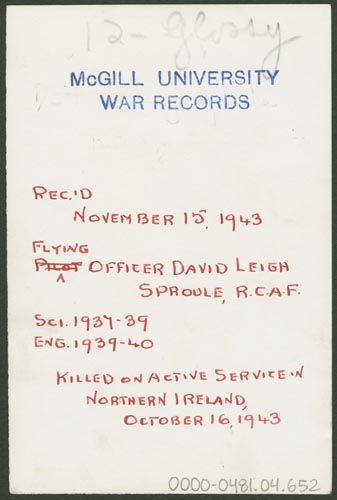 12 - Glossy
McGILL UNIVERSITY
WAR RECORDS
REC.'D
NOVEMBER 15, 1943
FLYING
PILOT OFFICER DAVID LEIGH
SPROULE, R.C.A.F.
SCI. 1937-39
ENG. 1939-40
KILLED ON ACTIVE SERVICE IN
NORTHERN IRELAND,
OCTOBER 16, 1943
0000-0481.04.652